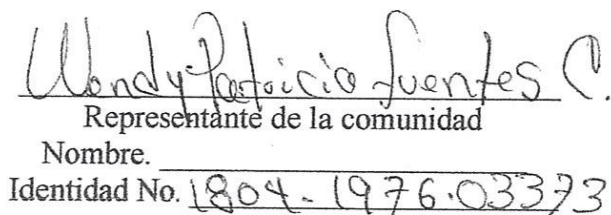 Wendy Patricia Fuentes C.
Representante de la comunidad
Nombre.
Identidad No. 1804-1976-03373